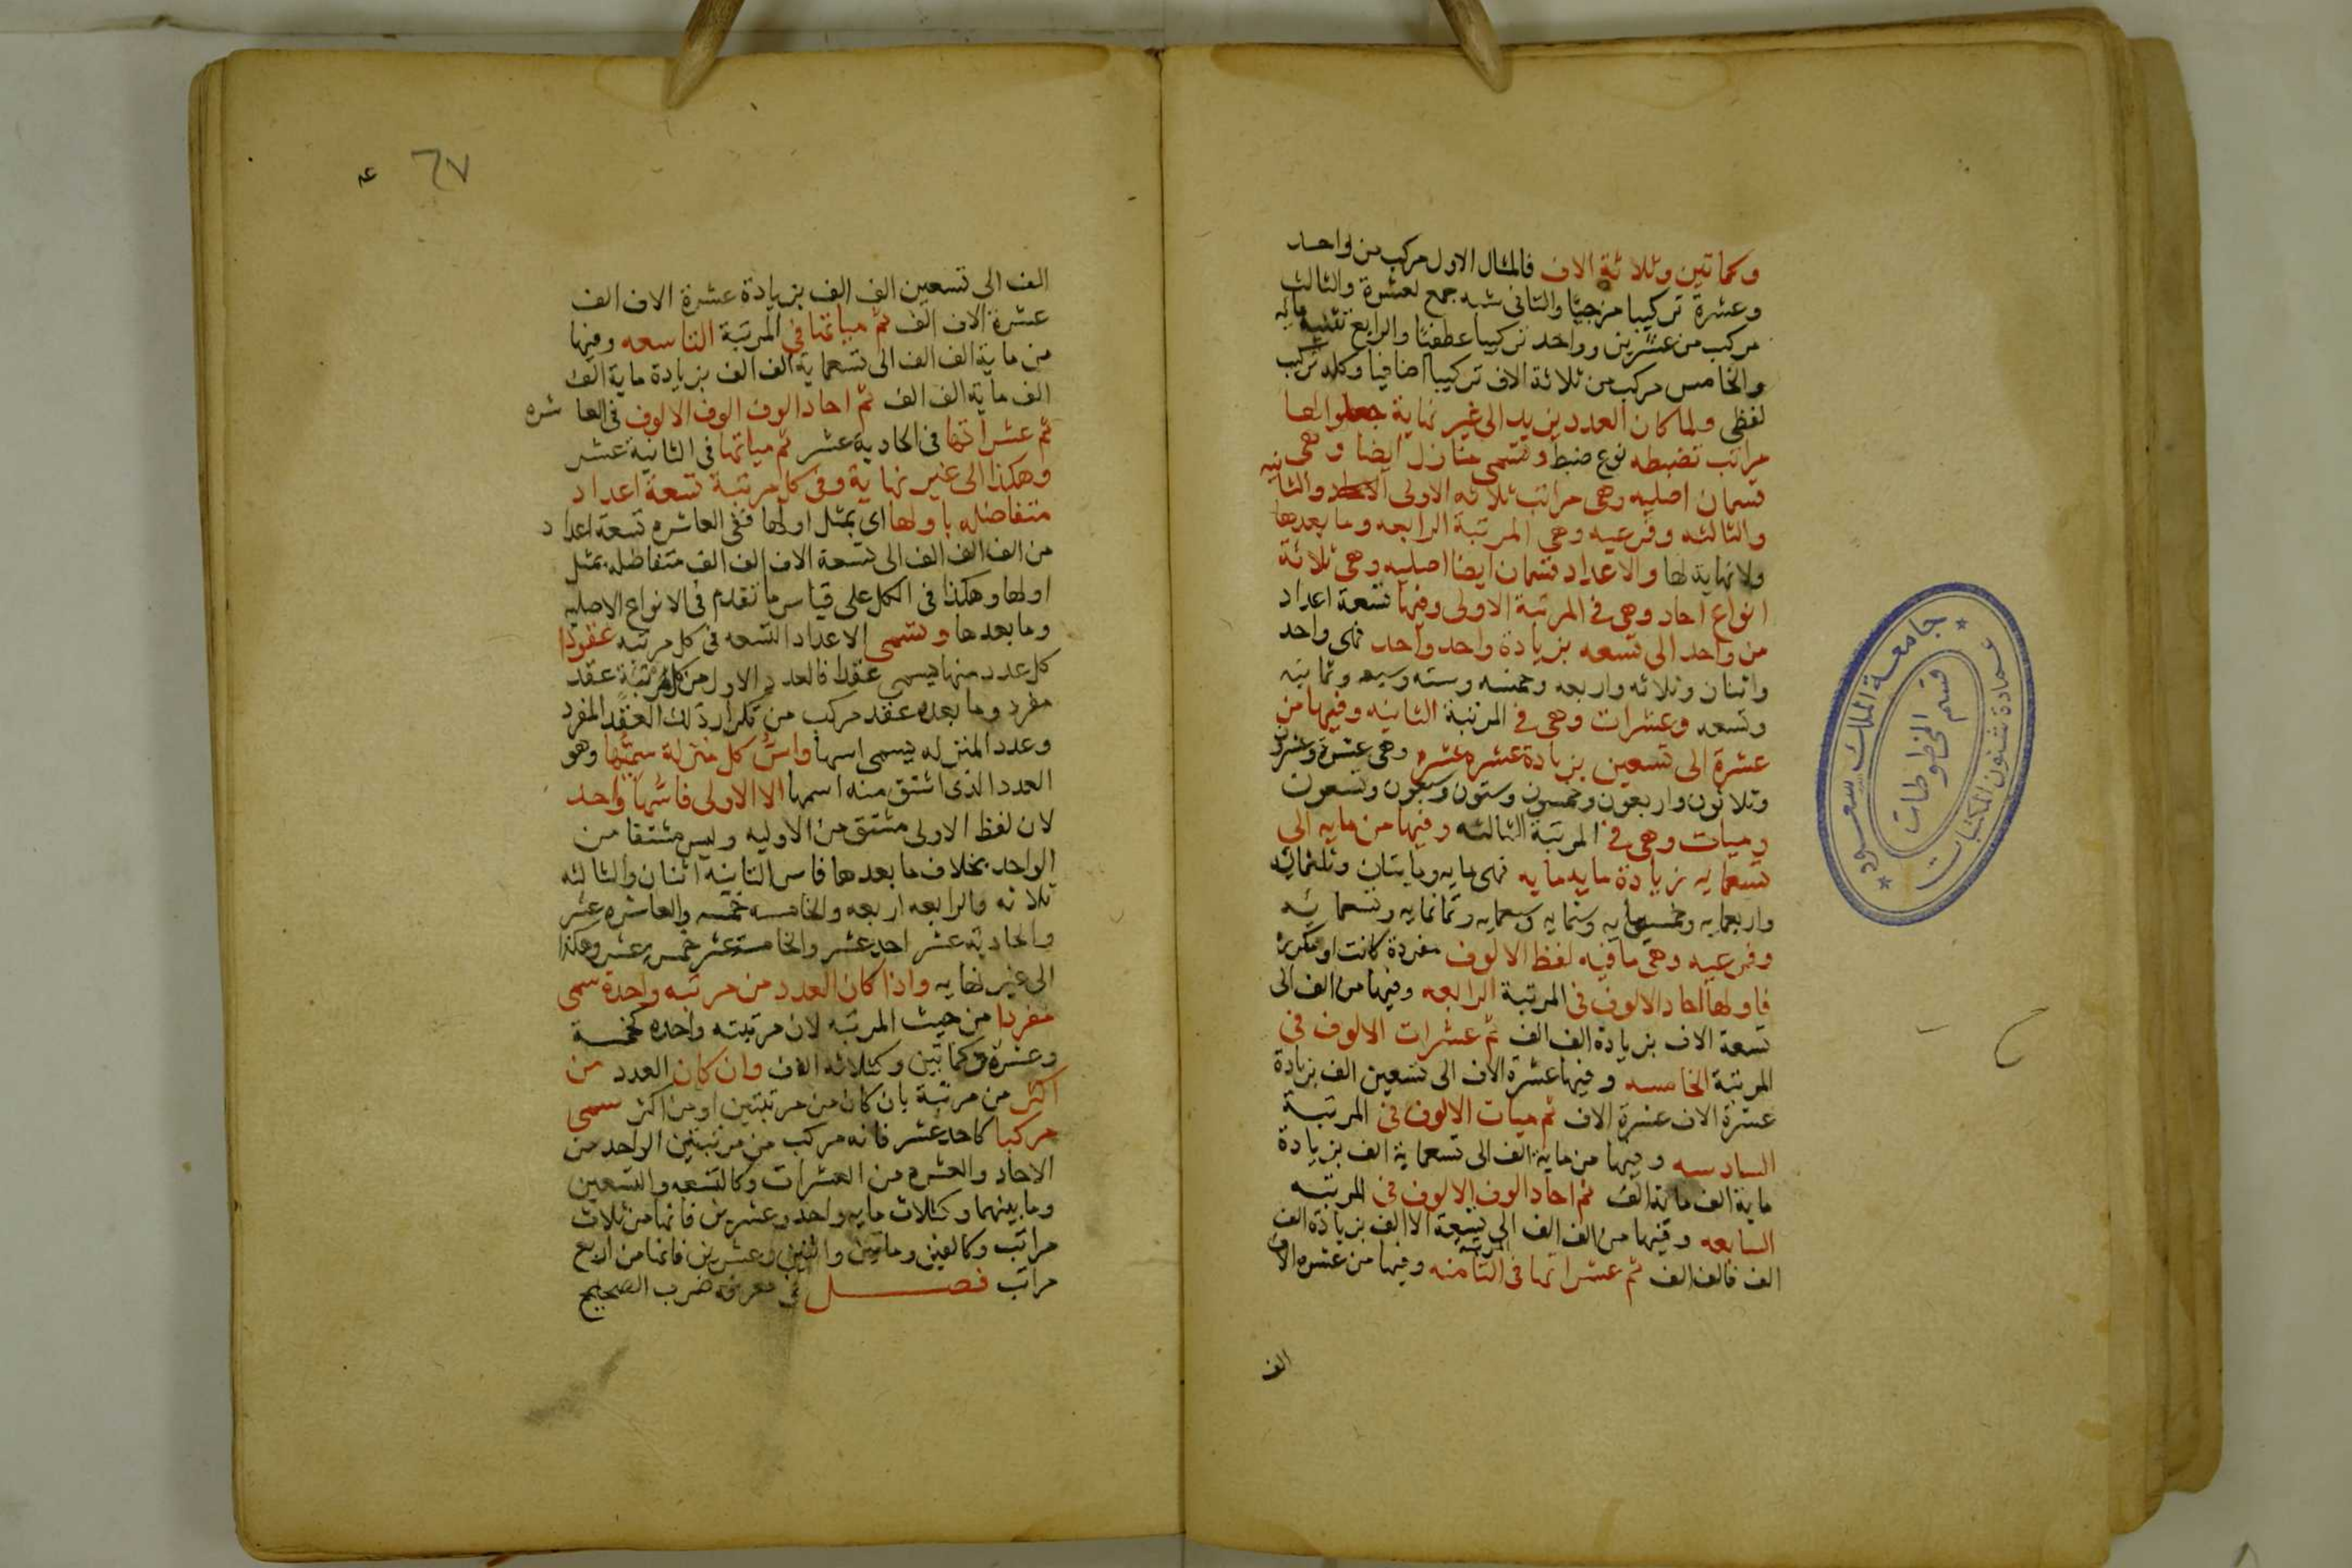 وكماتين وثلاثة الاف فالمثال الاول مركب من واحد
وعشرة تركيبا مزجيا والثانى شبه جمع لعشرة والثالث
مركب من عشرين وواحد تركيبا عطفيا والرابع تثنية مايه
والخامس مركب من ثلاثة الاف تركيبا اضافيا وكله تركيب
لفظى ولما كان العدد يزيد الى غير نهاية جعلوا لها
مراتب تضبطه نوع ضبط وتسمى منازل ايضا وهى
قسمان اصليه وهى مراتب ثلاثه الاولى والثانيه
والثالثه وفرعيه وهى المرتبة الرابعه وما بعدها
ولانهاية لها والاعداد قسمان ايضا اصليه وهى ثلاثة
انواع احاد وهى فى المرتبة الاولى وفيها تسعة اعداد
من واحد الى تسعه بزيادة واحد واحد فهى واحد
واثنان وثلاثه واربعه وخمسه وسته وسبعه وثمانيه
وتسعه وعشرات وهى فى المرتبة الثانيه وفيها من
عشرة الى تسعين بزيادة عشره عشره وهى عشرة وعشرون
وثلاثون واربعون وخمسون وستون وسبعون وتسعون
وميات وهى فى المرتبة الثالثه وفيها من مايه الى
تسعمايه بزيادة مايه مايه فهى مايه ومايتان وثلثمائه
واربعمايه وخمسمايه وستمايه وسبعمايه وثمانمايه وتسعمائه
وفرعيه وهى ما فيه لفظ الالوف مفردة كانت او مكرره
فاولها احاد الالوف فى المرتبة الرابعه وفيها من الف الى
تسعة الاف بزيادة الف الف ثم عشرات الالوف فى
المرتبة الخامسه وفيها عشرة الاف الى تسعين الف بزيادة
عشرة الاف عشرة الاف ثم ميات الالوف فى المرتبة
السادسه وفيها من ماية الف الى تسعماية الف بزيادة
ماية الف ماية الف ثم احاد الوف الالوف فى المرتبه
السابعه وفيها من الف الف الى تسعة الاالف بزيادة الف
الف فالف الف ثم عشراتها فى المرتبة الثامنه وفيها من عشره الاف
الف
٦٧
الف الى تسعين الف الف بزيادة عشرة الاف الف
عشرة الاف الف ثم مياتها فى المرتبة التاسعه وفيها
من ماية الف الف الى تسعماية الف الف بزيادة ماية الف
الف ماية الف الف ثم احاد الوف الوف الالوف فى العاشره
ثم عشراتها فى الحادية عشر ثم مياتها فى الثانية عشر
وهكذا الى غير نهاية وفى كل مرتبة تسعة اعداد
متفاضله باولها اى بمثل اولها ففى العاشره تسعة اعداد
من الف الف الف الى تسعة الاف الف الف متفاضله بمثل
اولها وهكذا فى الكل على قياس ما تقدم فى الانواع الاصليه
وما بعدها وتسمى الاعداد التسعه فى كل مرتبه عقودا
كل عدد منها يسمى عقدا فالعدد الاول من كل مرتبة عقد
مفرد وما بعده عقد مركب من تكرار ذلك العقد المفرد
وعدد المنزله يسمى اسها واس كل منزلة سميها وهو
العدد الذى اشتق منه اسمها الا الاولى فاسها واحد
لان لفظ الاولى مشتق من الاوليه وليس مشتقا من
الواحد بخلاف ما بعدها فاس الثانيه اثنان والثالثه
ثلاثه والرابعه اربعه والخامسه خمسه والعاشره عشر
والحادية عشر احد عشر والخامسة عشر خمس عشر وهكذا
الى غير نهايه واذا كان العدد من مرتبه واحدة سمى
مفردا من حيث المرتبه لان مرتبته واحده كخمسة
وعشرة وكماتين وكثلاثة الاف وان كان العدد من
اكثر من مرتبة بان كان من مرتبتين او من اكثر سمى
مركبا كاحد عشر فانه مركب من مرتبتين الواحد من
الاحاد والعشره من العشرات وكالتسعه والتسعين
وما بينهما وكثلاث مايه واحد وعشرين فانها من ثلاث
مراتب وكالفين ومائتين واثنين وعشرين فانها من اربع
مراتب فصل فى معرفة ضرب الصحيح
جامعة الملك سعود
عمادة شئون المكتبات
قسم المخطوطات